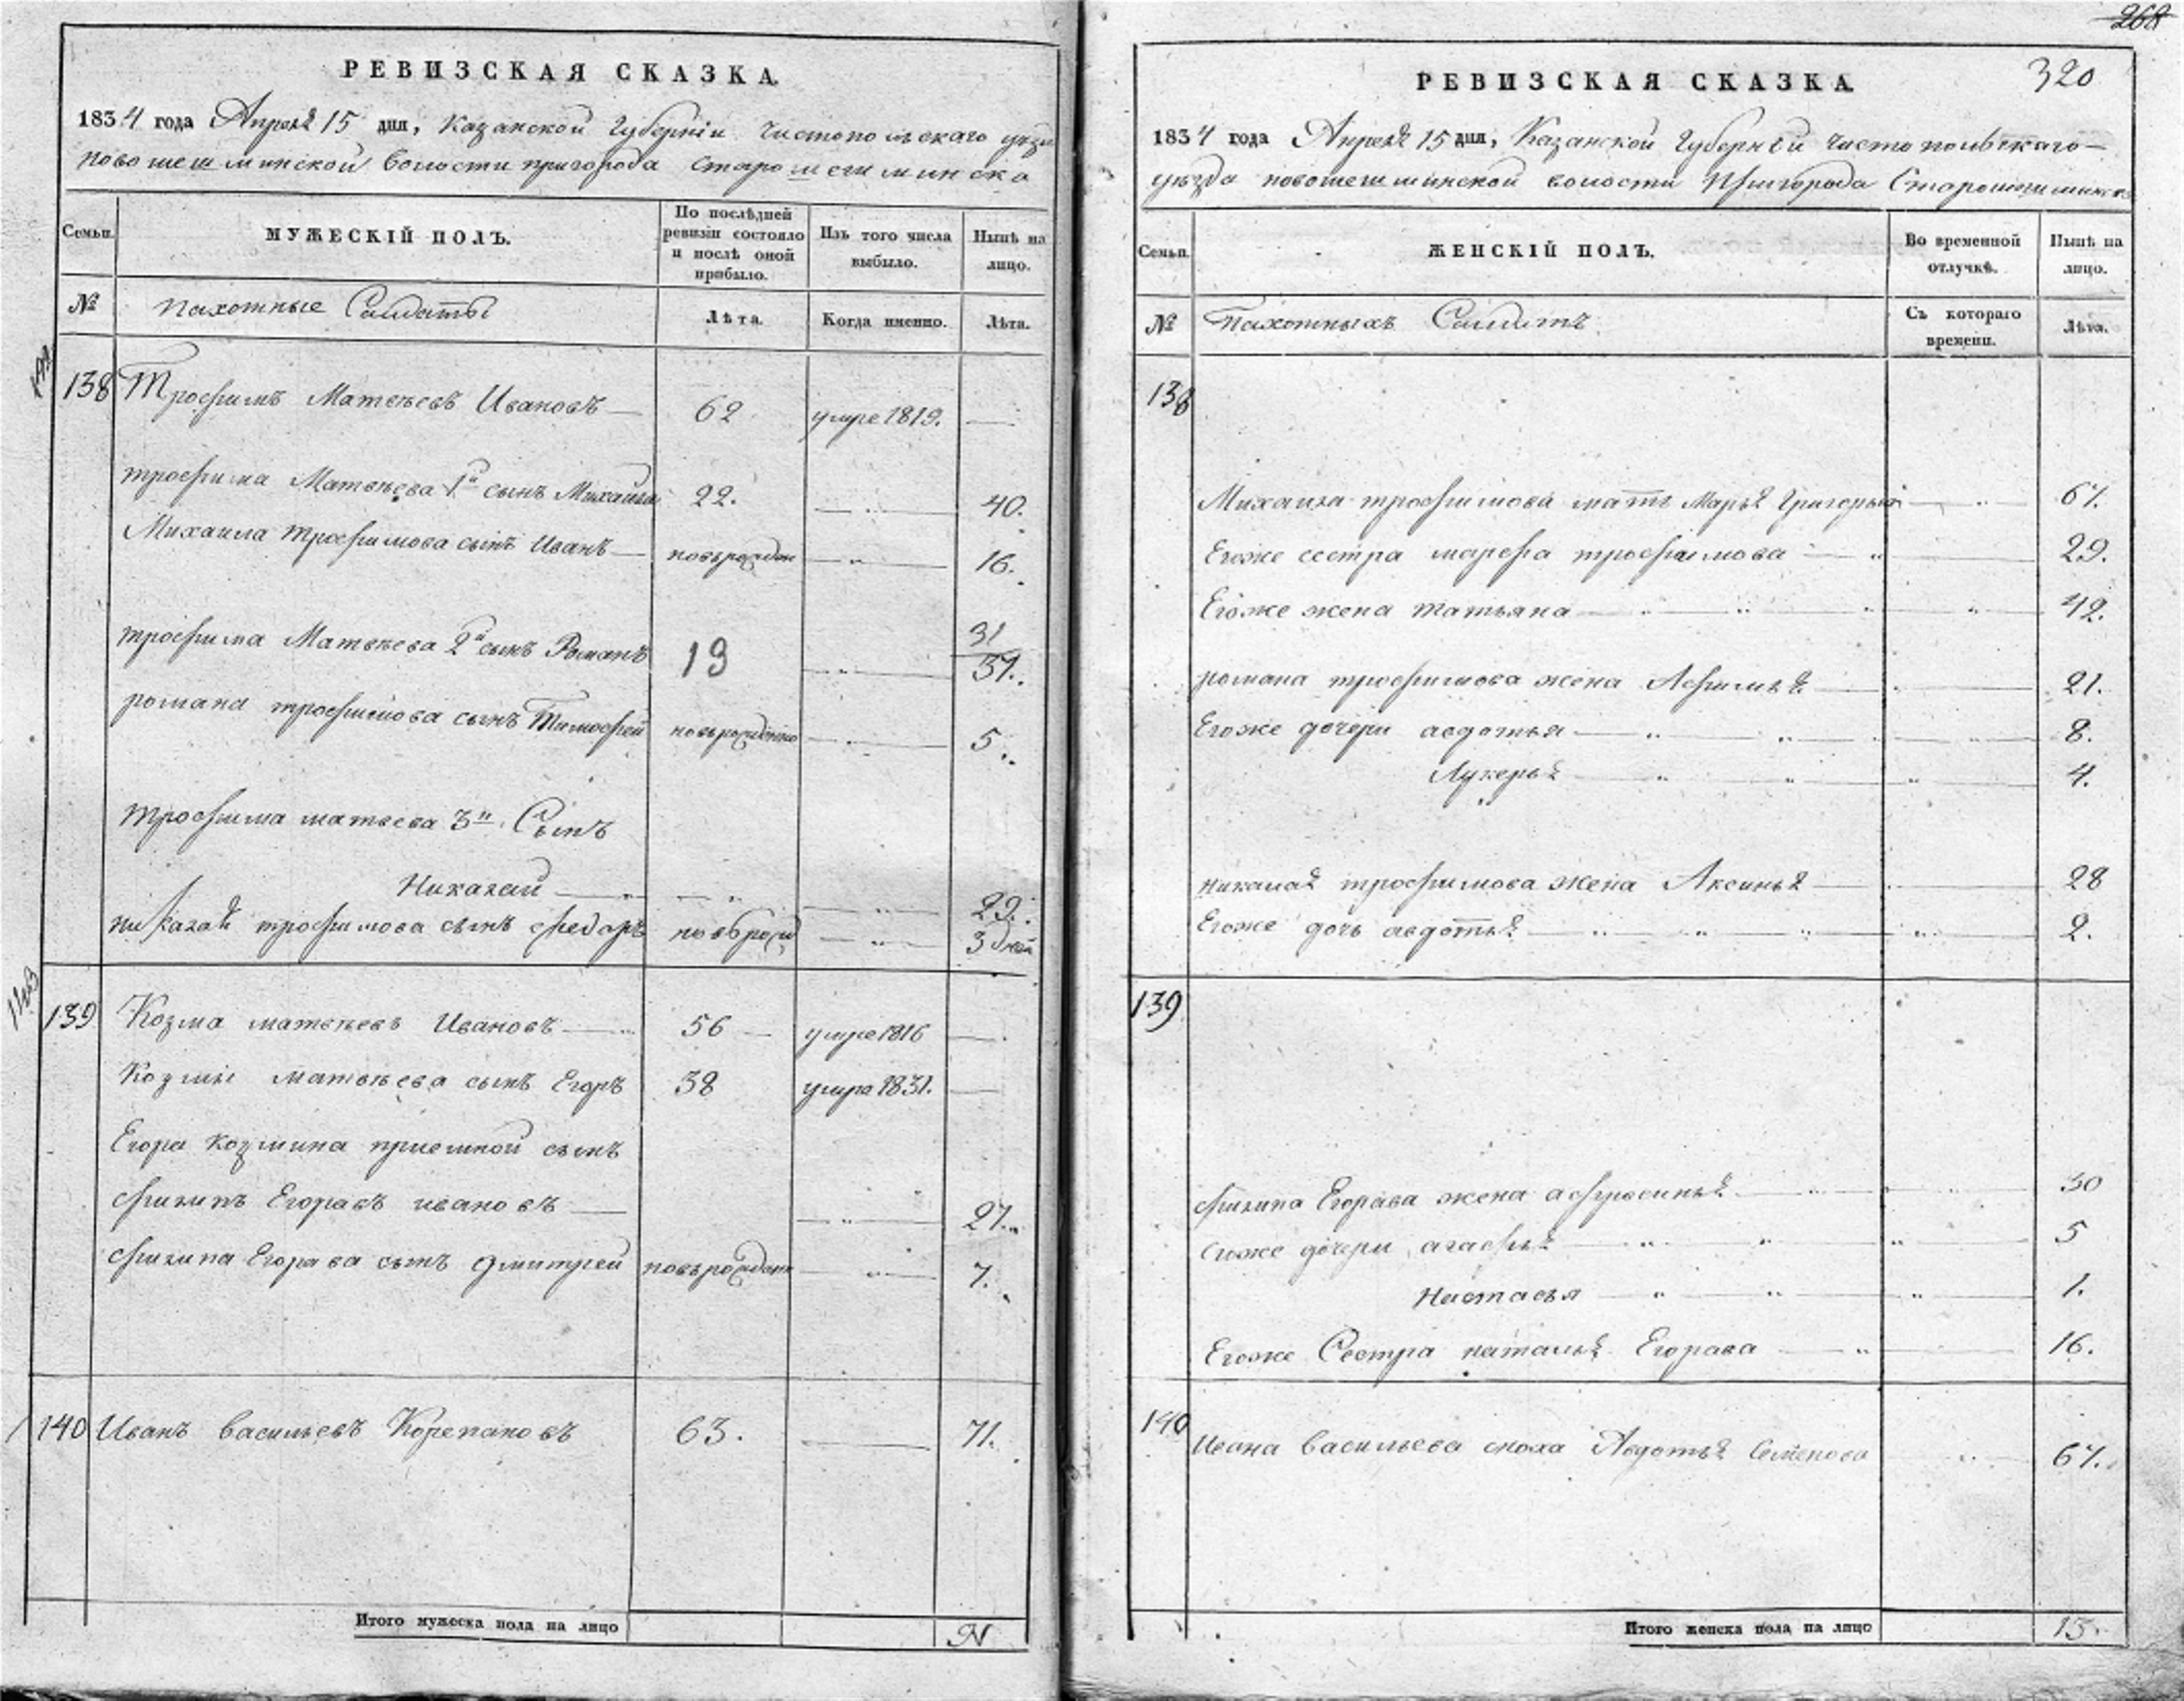 268
РЕВИЗСКАЯ СКАЗКА.
1834 года Апреля 15 дня, Казанской Губернiи Чистопольскаго уезда
новошешминской волости пригорода Старошешминска
Семьи.
МУЖЕСКІЙ ПОЛЪ.
По послѣдней ревизіи состояло и послѣ оной прибыло.
Изъ того числа выбыло.
Нынѣ на лицо.
№
пахотные Солдаты
Лѣта.
Когда именно.
Лѣта.
138 Трофимъ Матвѣевъ Ивановъ — 62 умре 1819. —
трофима Матвѣева 1й сынъ Михаила 22. — 40.
Михаила трофимова сынъ Иванъ — новърожден — 16.
трофима Матвѣева 2й сынъ Романъ 13 — 31
37.
романа трофимова сынъ Тимофей новърожденно — 5.
трофима матвева 3й Сынъ
Николай — 29.
николая трофимова сынъ федоръ новърожд — 3 дней
139 Козма матвѣевъ Ивановъ — 56 — умре 1816 —
Козмы матвѣева сынъ Егоръ 38 умре 1831. —
Егора козмина приемной сынъ
филипъ Егоравъ ивановъ — 27.
филипа Егорава сынъ дмитрей новърожден — 7.
140 Иванъ васильевъ Корепановъ 63. — 71.
Итого мужеска пола на лицо
N
320
РЕВИЗСКАЯ СКАЗКА.
1834 года Апреля 15 дня, Казанской Губернiи Чистопольскаго
уѣзда новошешминской волости Пригорода Старошешминска
Семьи.
ЖЕНСКІЙ ПОЛЪ.
Во временной отлучкѣ.
Нынѣ на лицо.
№
Пахотныхъ Солдатъ
Съ котораго времени.
Лѣта.
138
Михаила трофимова мать Марья Григорьева — 67.
Егоже сестра марфа трофимова — 29.
Егоже жена татьяна — 42.
романа трофимова жена Афимья — 21.
Егоже дочери авдотья — 8.
Лукерья — 4.
николая трофимова жена Аксинья — 28
Егоже дочь авдотья — 2.
139
филипа Егорава жена афросинья — 30
Егоже дочери агафья — 5
Настасья — 1.
Егоже Сестра наталья Егорава — 16.
140 Ивана васильева сноха Авдотья Семенова 67.
Итого женска пола на лицо
13.